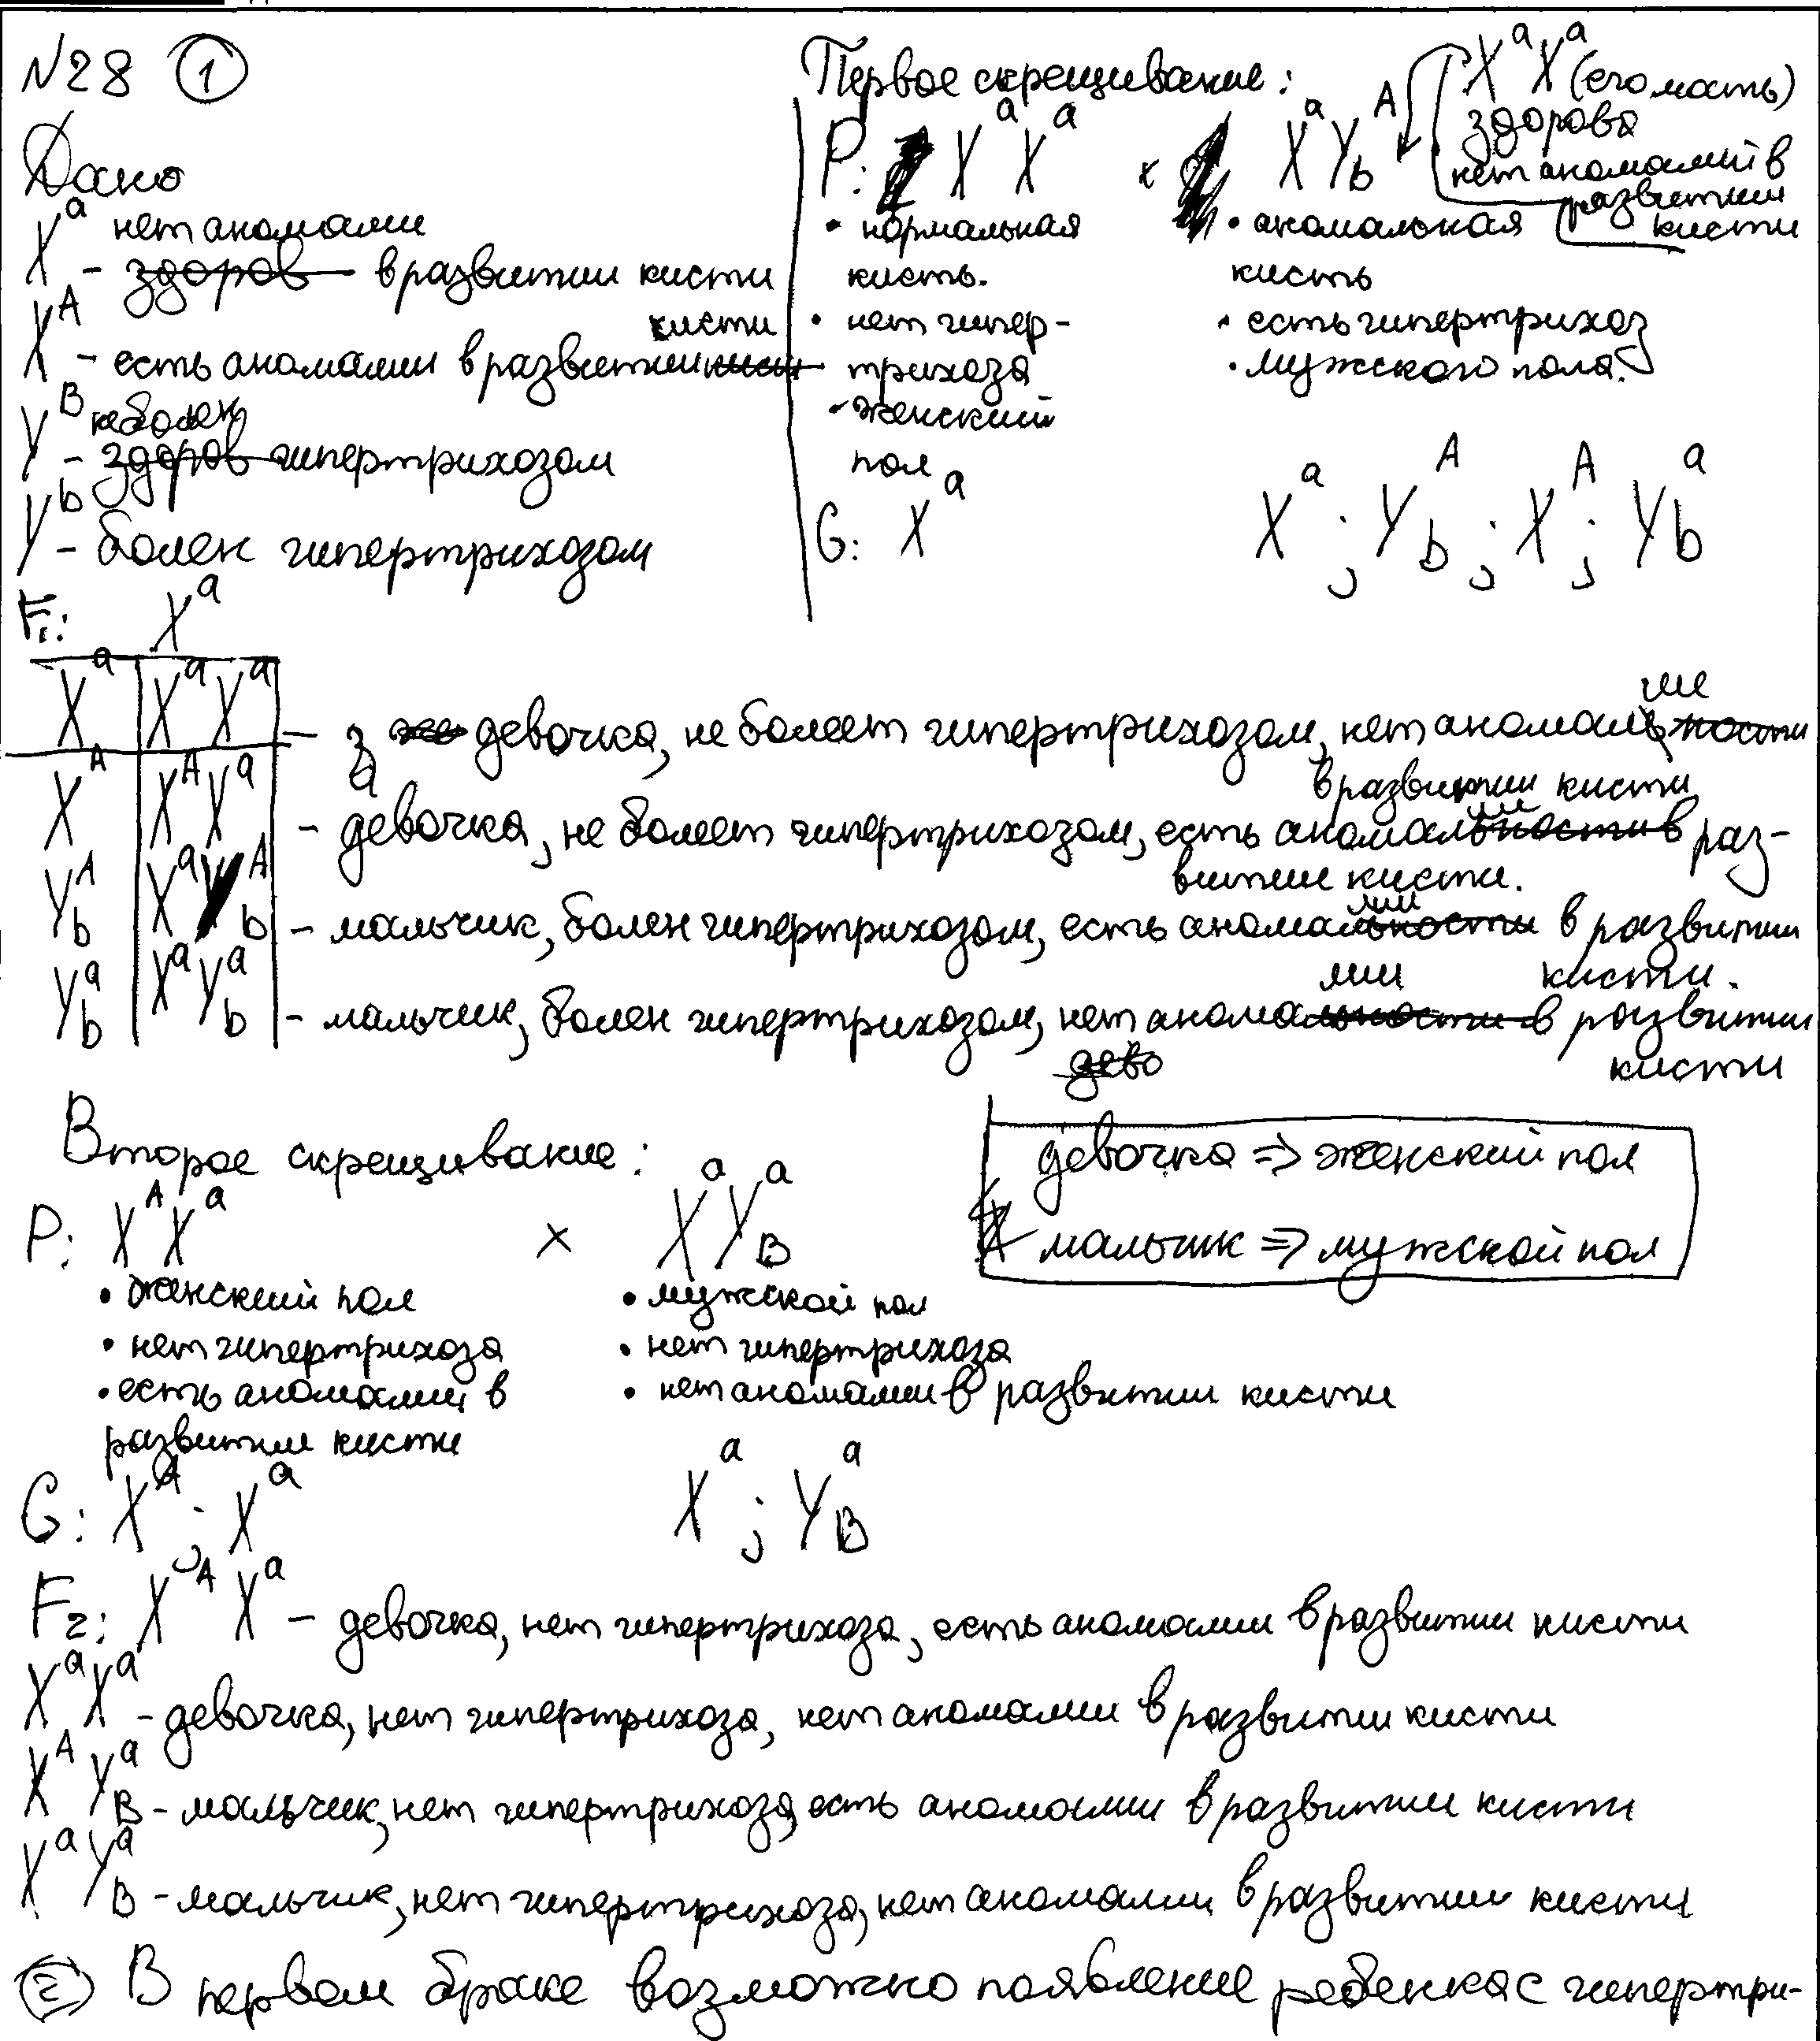 N28 ①
Дано
X^a - нет аномалии в развитии кисти
X^A - есть аномалии в развитии кисти
Y^B - не болен гипертрихозом
Y^b - болен гипертрихозом
Первое скрещивание:
P: X^a X^a × X^a Y_b^A
X^a X^a (его мать)
здорова
нет аномалий в
развитии
кисти
• нормальная
кисть.
• нет гипер-
трихоза
• женский
пол
• аномальная
кисть
• есть гипертрихоз
• мужского пола.
G: X^a X^a ; Y_b^A ; X^A ; Y_b^a
F₁: X^a
X^a X^a X^a - девочка, не болеет гипертрихозом, нет аномалии
в развитии кисти
X^A X^A X^a - девочка, не болеет гипертрихозом, есть аномалии в раз-
витии кисти.
Y_b^A X^a Y_b^A - мальчик, болен гипертрихозом, есть аномалии в развитии
кисти.
Y_b^a X^a Y_b^a - мальчик, болен гипертрихозом, нет аномалии в развитии
кисти
Второе скрещивание:
девочка => женский пол
мальчик => мужской пол
P: X^A X^a × X^a Y_B^a
• женский пол
• нет гипертрихоза
• есть аномалии в
развитии кисти
• мужской пол
• нет гипертрихоза
• нет аномалии в развитии кисти
G: X^A ; X^a X^a ; Y_B^a
F₂: X^A X^a - девочка, нет гипертрихоза, есть аномалии в развитии кисти
X^a X^a - девочка, нет гипертрихоза, нет аномалии в развитии кисти
X^A Y_B^a - мальчик, нет гипертрихоза, есть аномалии в развитии кисти
X^a Y_B^a - мальчик, нет гипертрихоза, нет аномалии в развитии кисти
② В первом браке возможно появление ребенка с гипертри-